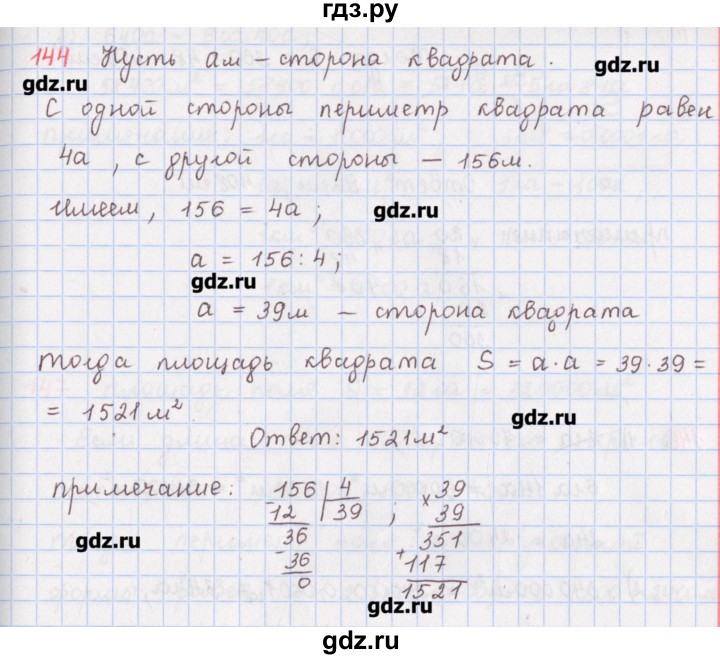 гдз.ру
144 Пусть ам – сторона квадрата.
gdz.ru
С одной стороны периметр квадрата равен
4а, с другой стороны – 156м.
Имеем, 156 = 4а;
gdz.ru
а = 156 : 4;
gdz.ru
а = 39м – сторона квадрата
тогда площадь квадрата S = а·а = 39·39 =
= 1521 м²
gdz.ru
Ответ: 1521м²
примечание: 156 | 4 ; × 39
- 12 | 39 39
gdz.ru
36 351
- 36 + 117
0 1521
gdz.ru
gdz.ru